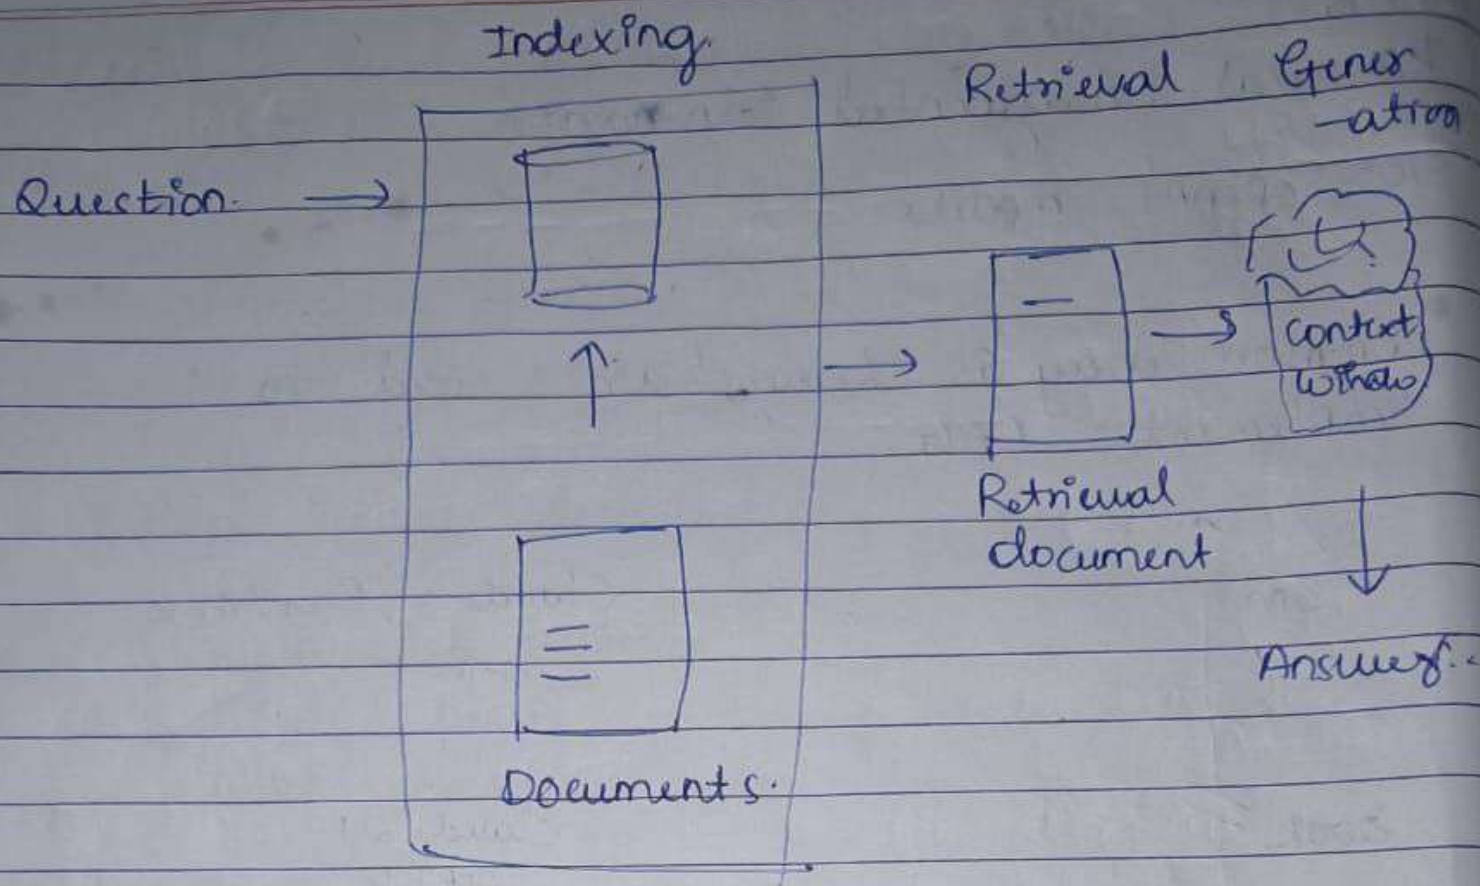 Indexing.
Retrieval
Gener
-ation
Question.
context
Retrieval
document
Answer.
Documents.